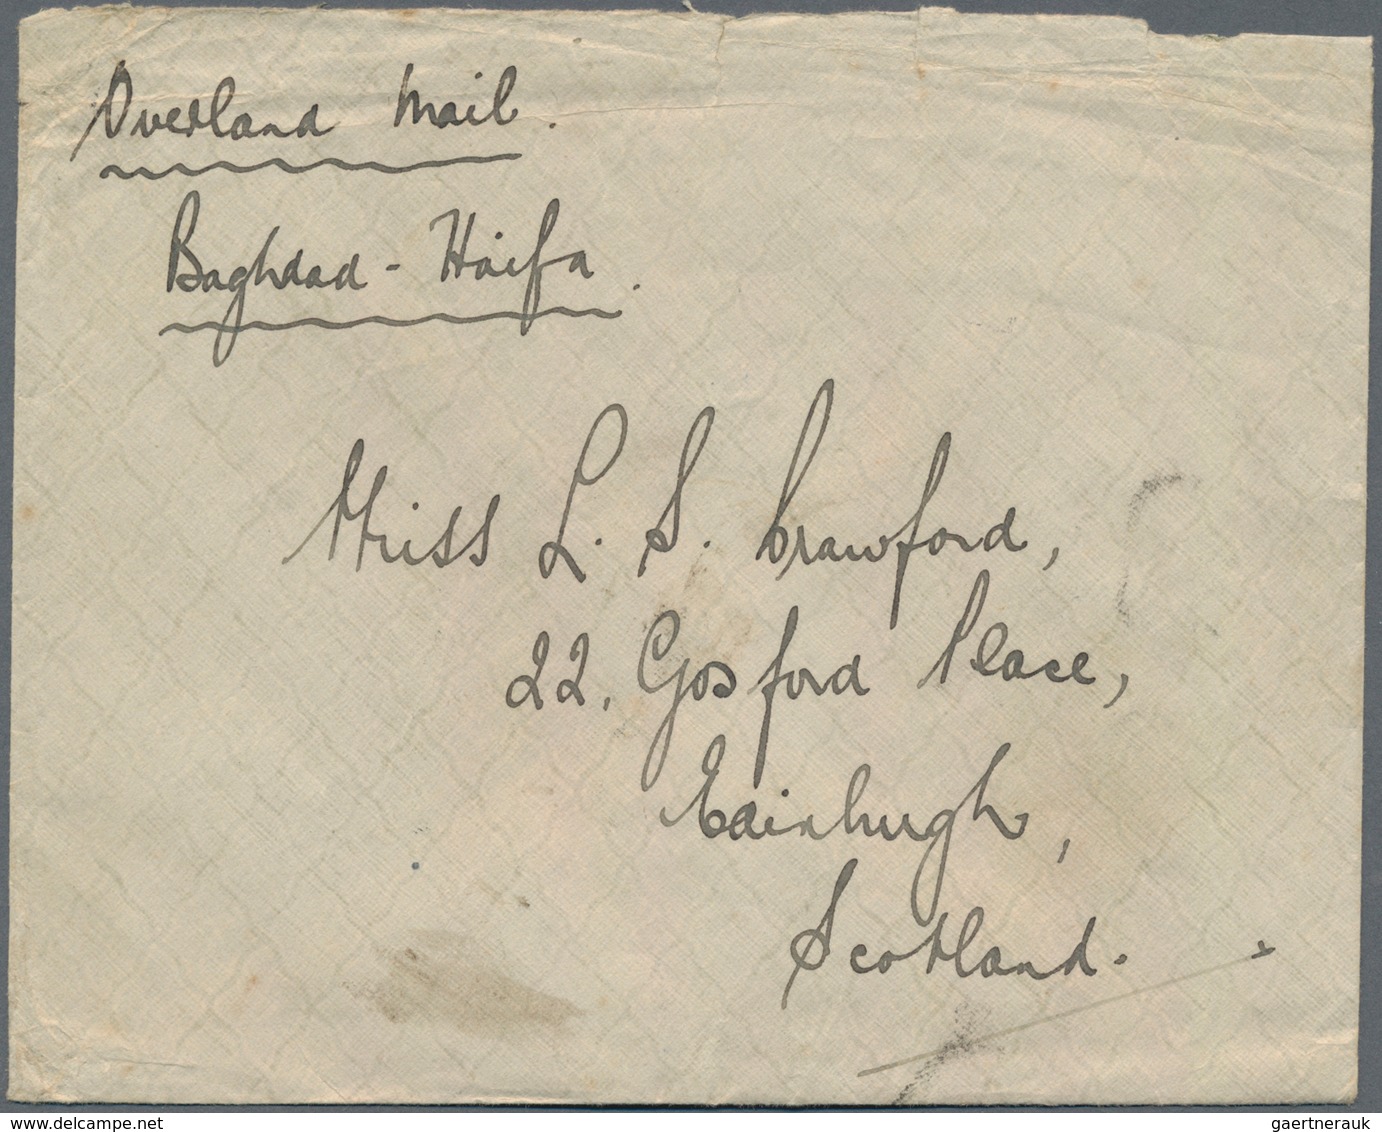 Overland Mail.
Baghdad - Haifa.
Miss L. S. Crawford,
22, Gosford Place,
Edinburgh,
Scotland.
delcampe.net
gaertnerauk